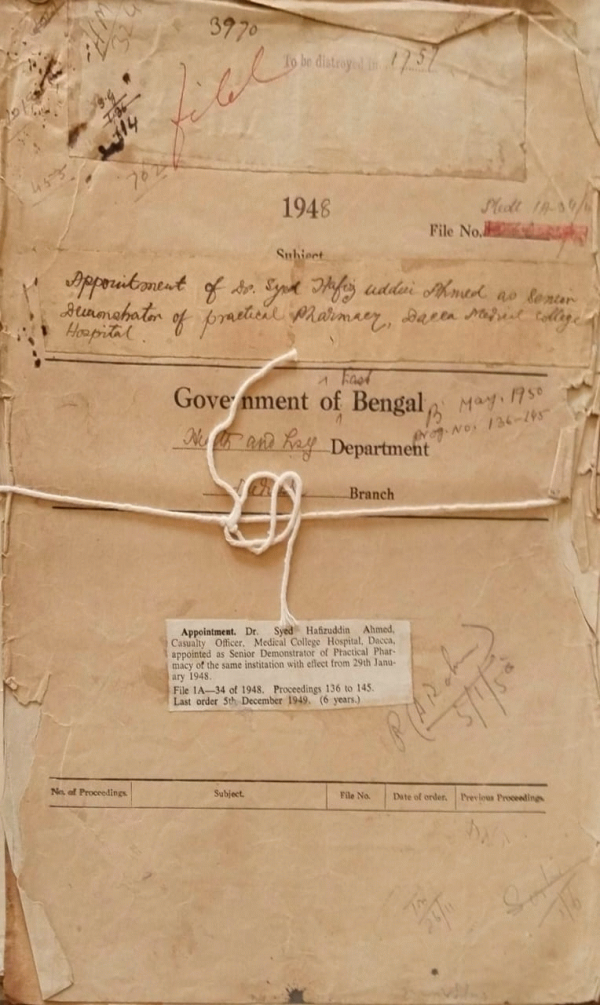 3970
To be distroyed in 1957
filed
1948
File No.
Subject
Appointment of Dr. Syed Hafiz uddin Ahmed as Senior
Demonstrator of practical Pharmacy, Dacca Medical College
Hospital.
East
Government of Bengal
B May. 1950
Prog. No. 136-145
Department
Branch
Appointment. Dr. Syed Hafizuddin Ahmed,
Casualty Officer, Medical College Hospital, Dacca,
appointed as Senior Demonstrator of Practical Phar-
macy of the same institution with effect from 29th Janu-
ary 1948.
File 1A—34 of 1948. Proceedings 136 to 145.
Last order 5th December 1949. (6 years.)
No. of Proceedings. Subject. File No. Date of order. Previous Proceedings.